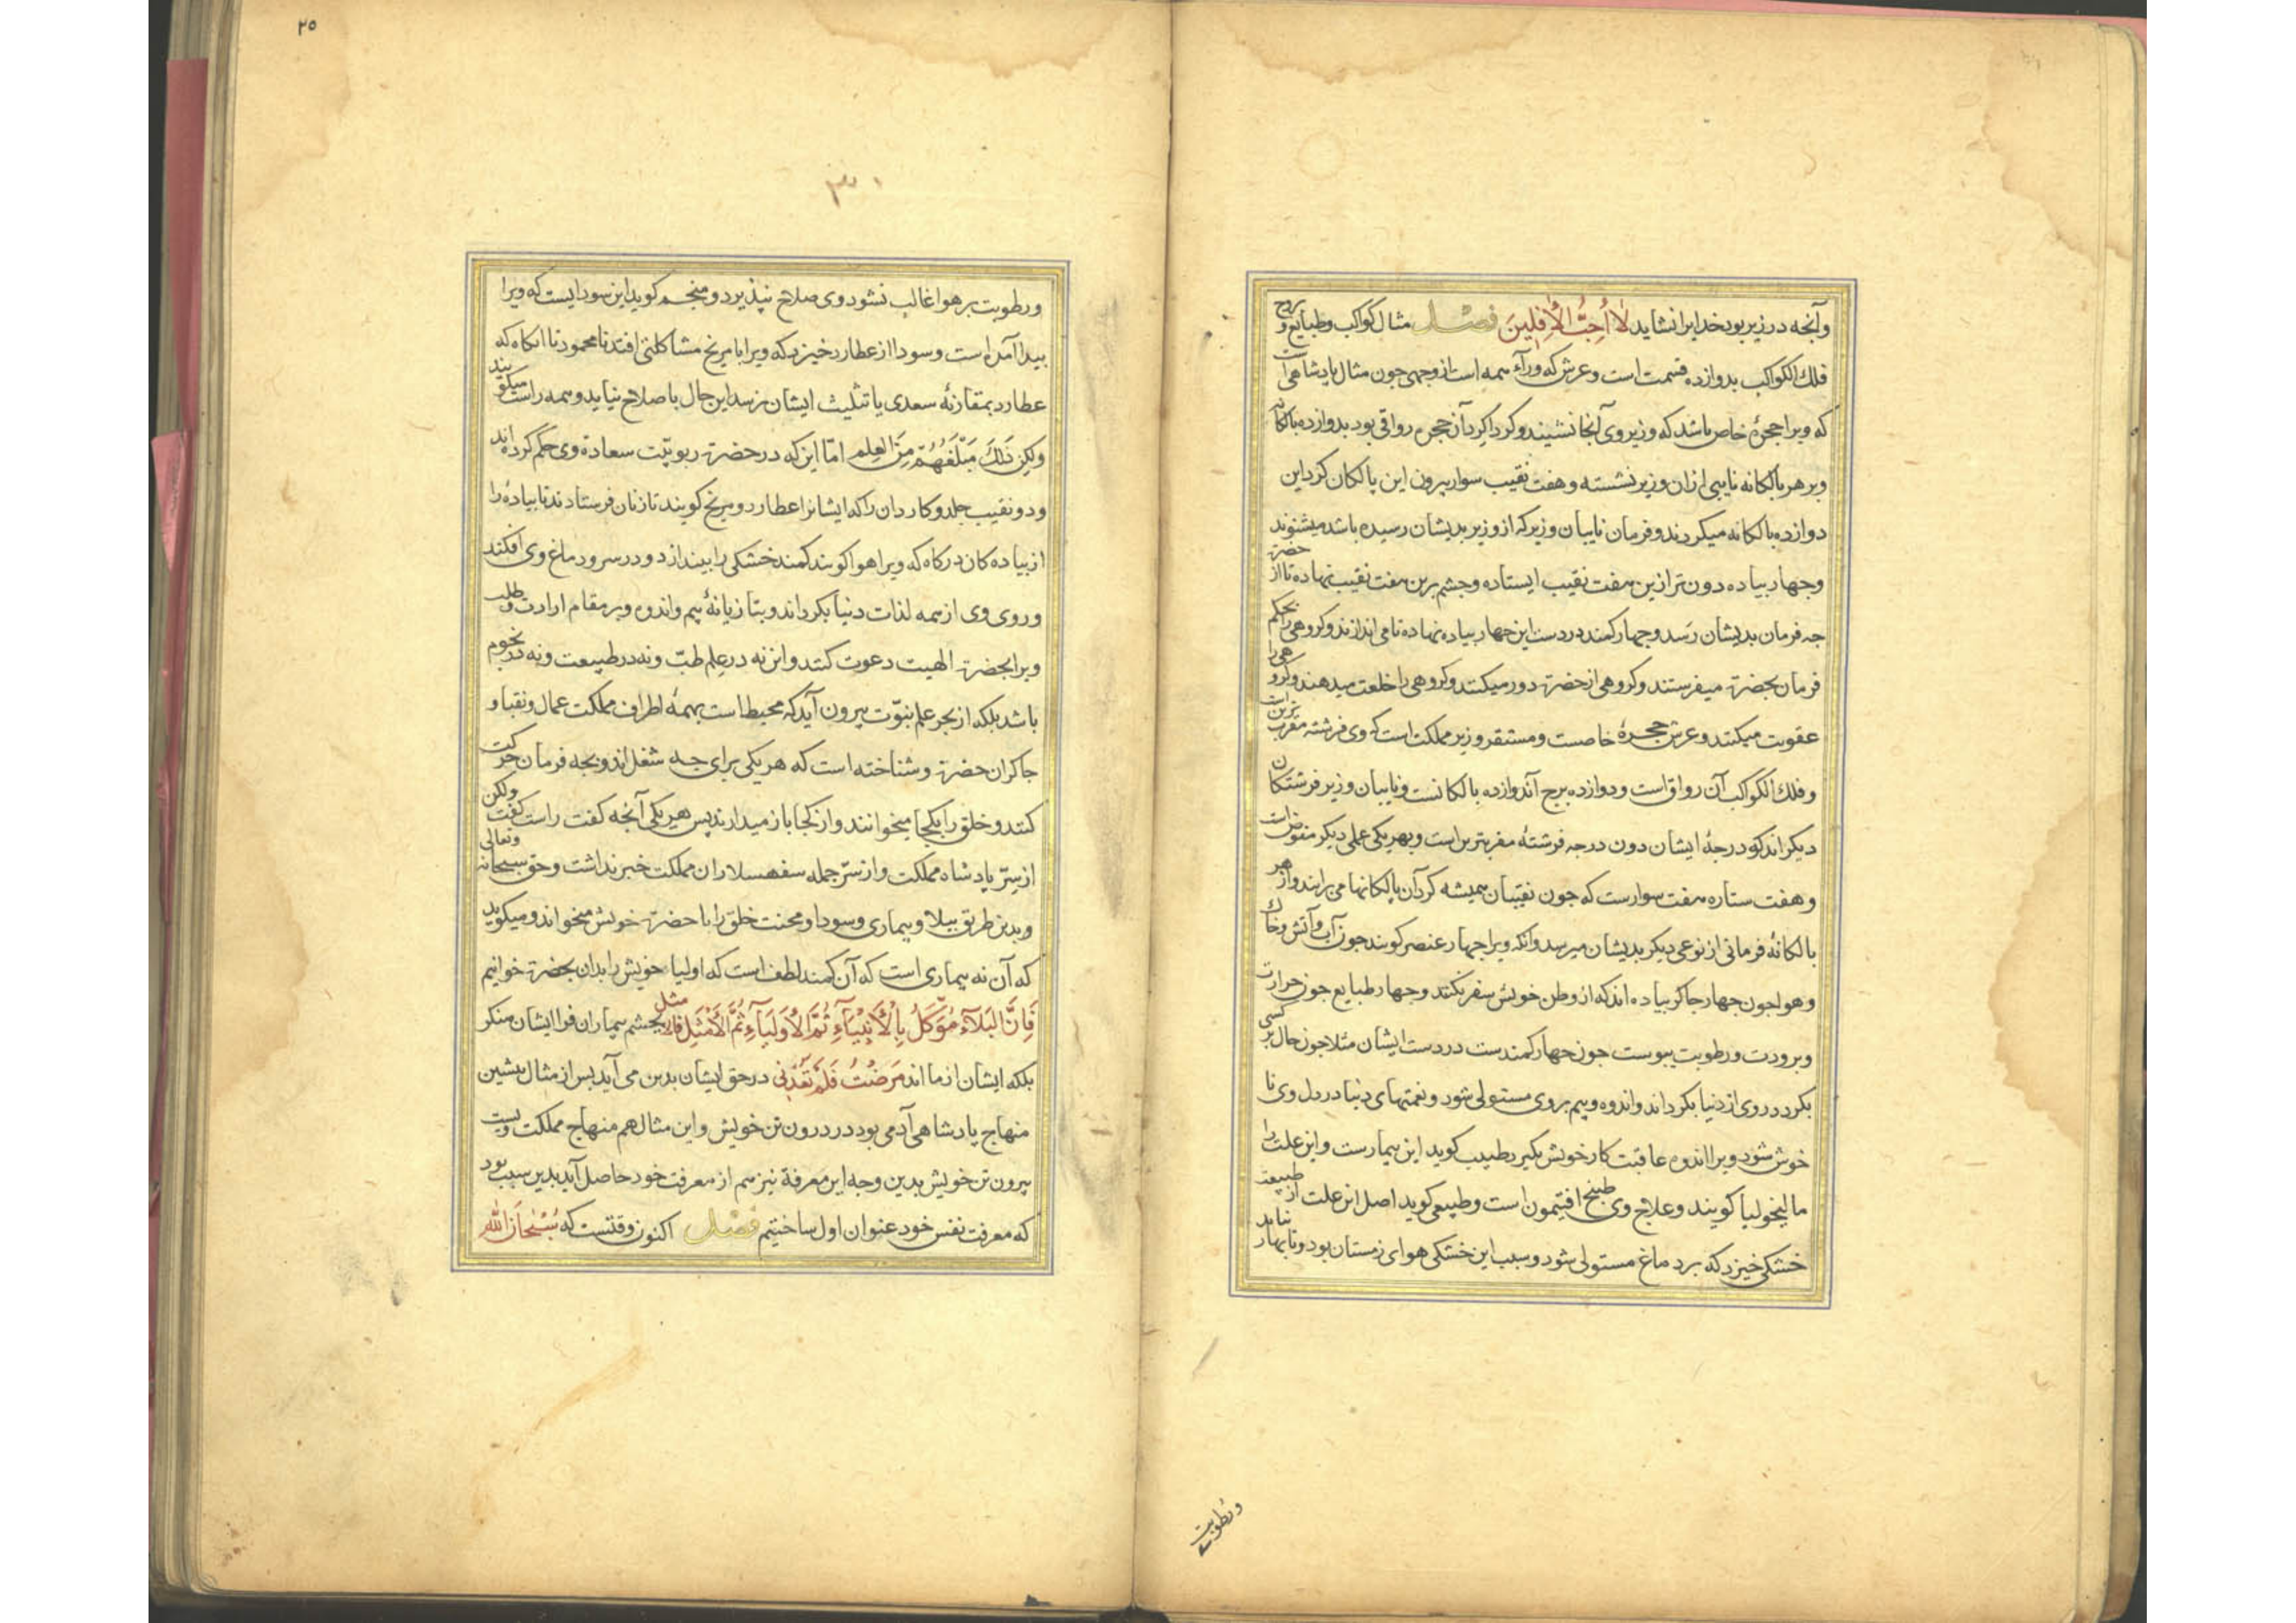 وآنجه در زیر بود خدایرا نشاید لَا أُحِبُّ الْأٰفِلِینَ فصل مثال کواکب وطبایع و بروج
فلك الکواکب بدوازده قسمت است وعرش که ورآء همه است از وجهی جون مثال پادشاهی است
که ویرا حجرۀ خاص باشد که وزیر وی آنجا نشیند وکرداکرد آن حجره رواقی بود بدوازده بالکانه
وبر هر بالکانه نایبی ازان وزیر نشسته وهفت نقیب سوار بیرون این پالکان کرد این
دوازده بالکانه میکردند وفرمان نایبان وزیر که از وزیر بدیشان رسیده باشد میشنوند
وجهار بیاده دون تر ازین هفت نقیب ایستاده وجشم برین هفت نقیب نهاده تا از حضرة
جه فرمان بدیشان رَسد وجهار کمند در دست این جهار بیاده نهاده تا می اندازند وکروهی را بحکم
فرمان بحضرة میفرستند وکروهی از حضرة دور میکنند وکروهی را خلعت میدهند وکروهی را
عقوبت میکنند وعرش حجرۀ خاصست ومستقر وزیر مملکت است که وی فرشته مقرب ترین است
وفلك الکواکب آن رواق است ودوازده برج آن دوازده بالکانست ونایبان وزیر فرشتکان
دیکر اند که درجۀ ایشان دون درجه فرشتۀ مقربترین است وبهریکی عملی دیکر مفوض است
وهفت ستاره هفت سوارست که جون نقیبان همیشه کرد آن پالکانها می برایند واز هر
بالکانۀ فرمانی از نوعی دیکر بدیشان میرسد وآنکه ویرا جهار عنصر کویند جون آب وآتش وخاك
وهوا جون جهار جاکر بیاده اند که از وطن خویش سفر نکنند وجهار طبایع جون حرارت
وبرودت ورطوبت یبوست جون جهار کمندست در دست ایشان مثلا جون حال بر کسی
بکردد روی از دنیا بکرداند واندوه وبیم بروی مستولی شود ونعمتهای دنیا در دل وی نا
خوش شود ویرا اندوه عاقبت کار خویش بکیرد طبیب کوید این بیمارست واین علت را
مالیخولیا کویند وعلاج وی طبخ افتیمون است وطبیعی کوید اصل این علت از طبیعت
خشکی خیزد که بر دماغ مستولی شود وسبب این خشکی هوای زمستان بود وتا بهار نیاید
ورطوبت
٢٥
٣٠
ورطوبت بر هوا غالب نشود وی صلاح نپذیرد ومنجم کوید این سودایست که ویرا
بیدا آمده است وسودا از عطارد خیزد که ویرا با مریخ مشاکلتی افتد نا محمود تا آنکاه که
عطارد بمقارنۀ سعدی یا تثلیث ایشان نرسد این حال باصلاح نیاید وهمه راست میکویند
ولکن ذَلِكَ مَبْلَغُهُمْ مِنَ الْعِلم امّا این که در حضرة ربوبیّت سعادة وی حکم کرده اند
ودو نقیب جلد وکاردان را که ایشانرا عطارد ومریخ کویند تازنان فرستادند تا بیادۀ را
از بیادکان درکاه که ویرا هوا کویند کمند خشکی را بیندازد ودر سر ودماغ وی افکند
وروی وی از همه لذات دنیا بکرداند وبتازیانۀ بیم واندوه وبر مقام ارادت وطلب
ویرا بحضرة الهیت دعوت کنند واین نه در علم طبّ ونه در طبیعت ونه در نجوم
باشد بلکه از بحر علم نبوّت بیرون آید که محیط است بهمۀ اطراف مملکت عمال ونقبا و
جاکران حضرة وشناخته است که هر یکی برای جه شغل اند وبجه فرمان حرکت
کنند وخلق را بکجا میخوانند واز کجا باز میدارند پس هر یکی آنجه کفت راست کفت ولکن
از سِرّ پادشاه مملکت واز سرّ جمله سفهسلاران مملکت خبر نداشت وحق سبحانه وتعالی
وبدین طریق ببلا وبیماری وسودا ومحنت خلق را با حضرة خویش میخواند ومیکوید
که آن نه بیماری است که آن کمند لطف است که اولیا خویش را بدان بحضرة خوانیم
فَاِنَّ الْبَلَاءَ مُوَّكَلٌ بِالْأَنْبِيَآءِ ثُمَّ الْأَوْلِيَآءِ ثُمَّ الْأَمْثَلِ فالامثل بجشم بیماران فرا ایشان منکر
بلکه ایشان از ما اند مَرِضْتُ فَلَمْ تَعُدْنِی در حق ایشان بدین می آید بس از مثال بیشین
منهاج پادشاهی آدمی بود در درون تن خویش واین مثال هم منهاج مملکت ویست
بیرون تن خویش بدین وجه این معرفة نیز هم از معرفت خود حاصل آید بدین سبب بود
که معرفت نفس خود عنوان اول ساختیم فصل اکنون وقتست که سُبْحَانَ اللّٰه